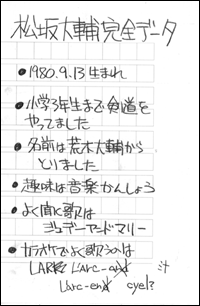 松坂大輔完全データ
●1980.9.13生まれ
●小学3年生まで剣道を
やってました
●名前は荒木大輔から
とりました
●趣味は音楽かんしょう
●よく聞く歌は
ジュデーアンドマリー
●カラオケでよく歌うのは
L'arc-en
L'arc-en cyel?